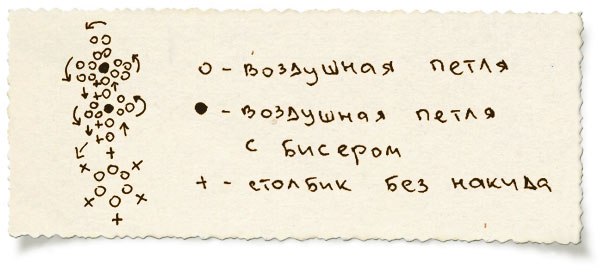 о - воздушная петля
● - воздушная петля
с бисером
+ - столбик без накида